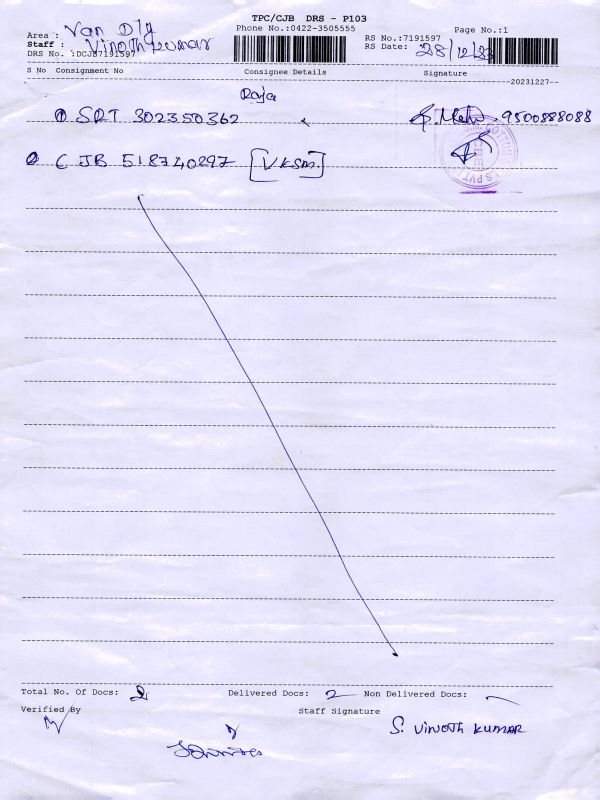 TPC/CJB DRS - P103
Phone No.:0422-3505555
Page No.:1
Area : Van Dly
Staff : Vinoth kumar
DRS No. :DCJB7191597
RS No.:7191597
RS Date: 28/12/23
S No Consignment No Consignee Details Signature
20231227
Raja
1 SRT 302350362 9500888088
2 CJB 518740297 [VKSM]
Total No. Of Docs: 2 Delivered Docs: 2 Non Delivered Docs: -
Verified By Staff Signature
S. VINOTH KUMAR